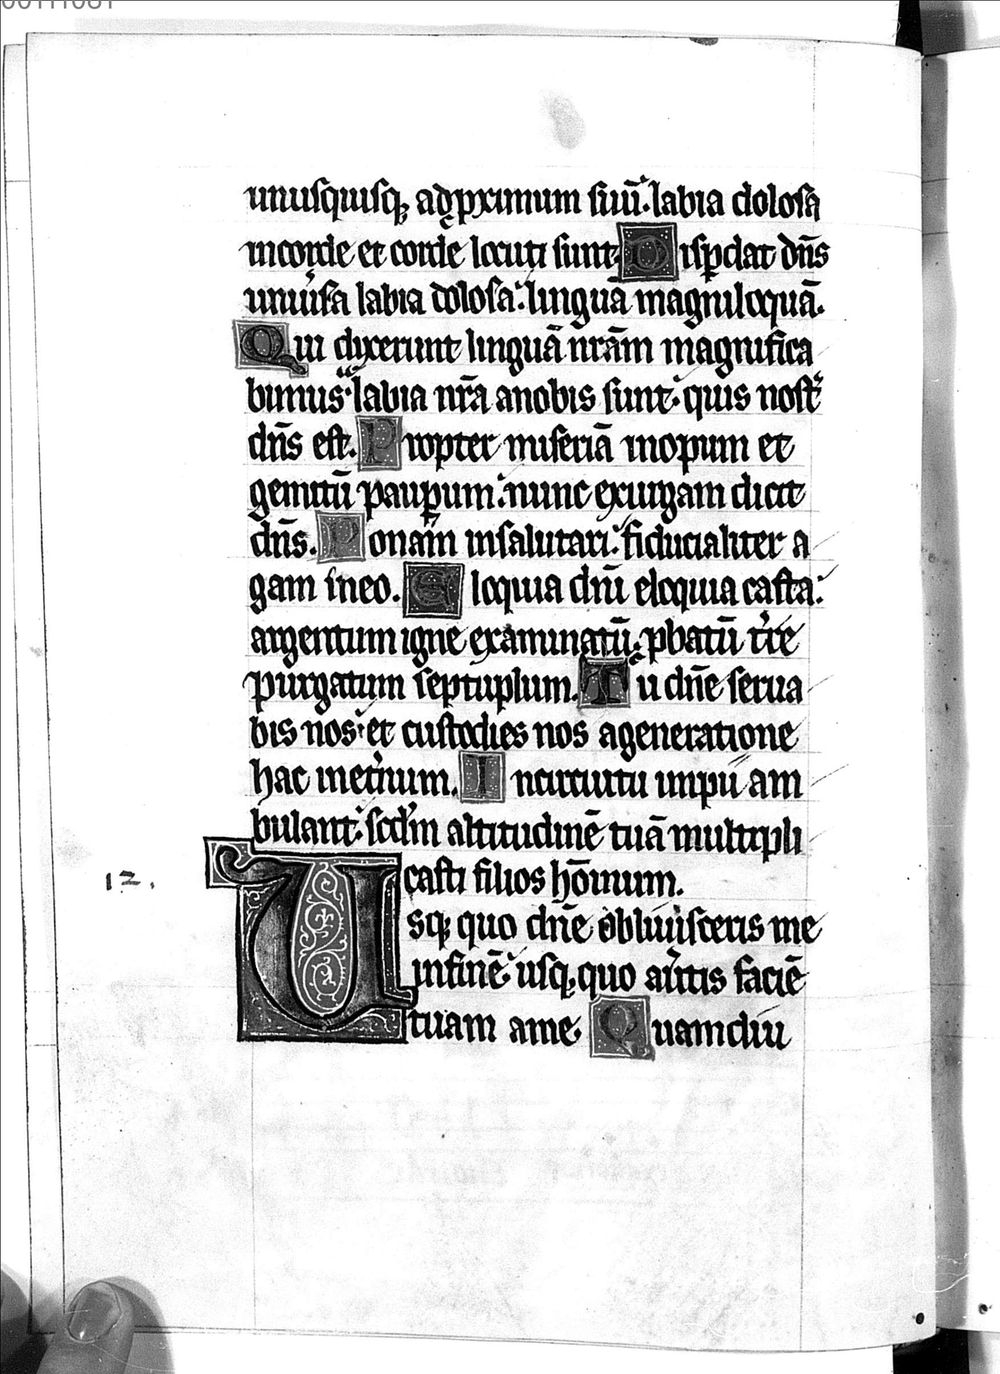 unusquisq; ad pximum suū. labia dolosa
in corde et corde locuti sunt. Dispdat dn̄s
uniu'sa labia dolosa. linguā magniloquā.
Qui dixerunt linguā nr̄am magnifica
bimus. labia nr̄a a nobis sunt. quis nost'
dn̄s est. Propter miseriā inopum et
gemitū paupum. nunc exurgam dicit
dn̄s. Ponam in salutari. fiducialiter a
gam in eo. Eloquia dn̄i eloquia casta.
argentum igne examinatū. pbatū t're
purgatum septuplum. Tu dn̄e serua
bis nos. et custodies nos a generatione
hac in et'num. In circuitu impii am
bulant. scd'm altitudinē tuā multipli
12.
casti filios hōinum.
Usq; quo dn̄e obliuisceris me
in finē. usq; quo au'tis faciē
tuam a me. Quamdiu